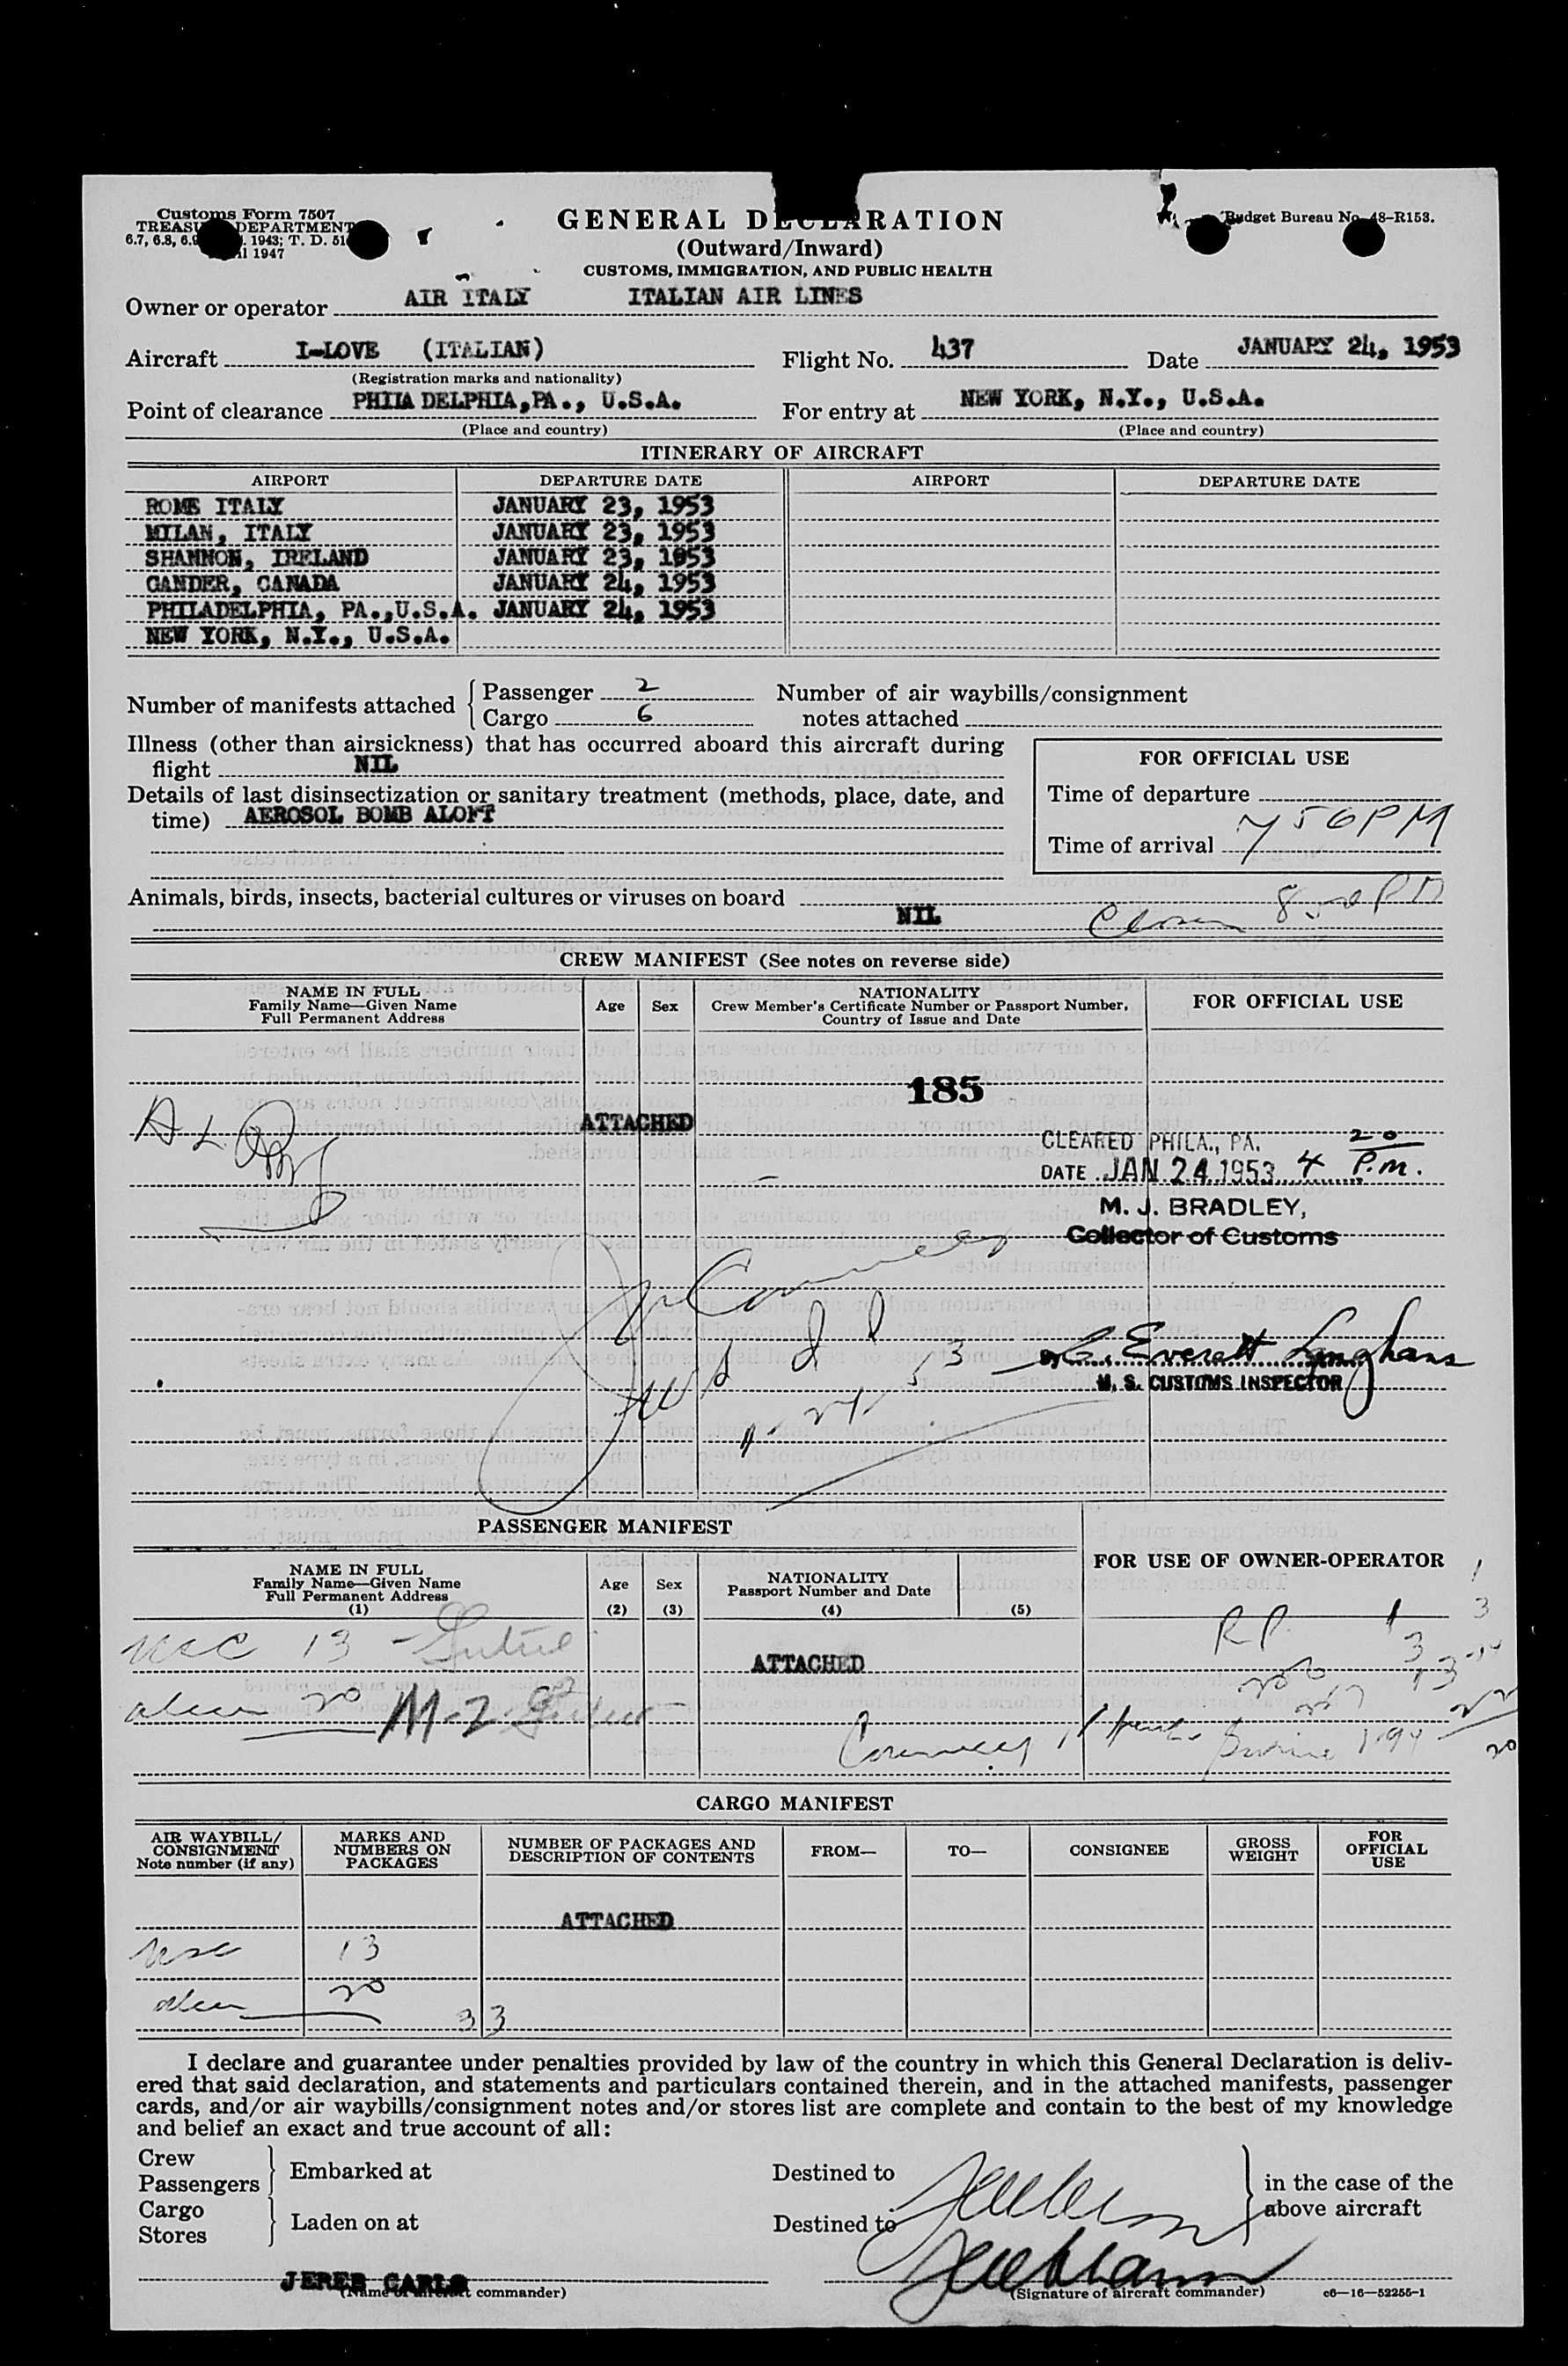 Customs Form 7507
TREASU DEPARTMENT
6.7, 6.8, 6.9 1943; T. D. 51
il 1947
GENERAL DECLARATION
(Outward/Inward)
CUSTOMS, IMMIGRATION, AND PUBLIC HEALTH
Budget Bureau No. 48-R153.
Owner or operator AIR ITALY ITALIAN AIR LINES
Aircraft I-LOVE (ITALIAN) Flight No. 437 Date JANUARY 24, 1953
(Registration marks and nationality)
Point of clearance PHILA DELPHIA,PA., U.S.A. For entry at NEW YORK, N.Y., U.S.A.
(Place and country) (Place and country)
ITINERARY OF AIRCRAFT
AIRPORT DEPARTURE DATE AIRPORT DEPARTURE DATE
ROME ITALY JANUARY 23, 1953
MILAN, ITALY JANUARY 23, 1953
SHANNON, IRELAND JANUARY 23, 1953
GANDER, CANADA JANUARY 24, 1953
PHILADELPHIA, PA.,U.S.A. JANUARY 24, 1953
NEW YORK, N.Y., U.S.A.
Number of manifests attached { Passenger 2
Cargo 6
Number of air waybills/consignment
notes attached
Illness (other than airsickness) that has occurred aboard this aircraft during
flight NIL
Details of last disinsectization or sanitary treatment (methods, place, date, and
time) AEROSOL BOMB ALOFT
FOR OFFICIAL USE
Time of departure
Time of arrival 7 50 PM
Animals, birds, insects, bacterial cultures or viruses on board
NIL
8 50 PM
CREW MANIFEST (See notes on reverse side)
NAME IN FULL
Family Name—Given Name
Full Permanent Address
Age Sex
NATIONALITY
Crew Member's Certificate Number or Passport Number,
Country of Issue and Date
FOR OFFICIAL USE
185
ATTACHED
CLEARED PHILA., PA.
DATE JAN 24 1953 4 20 P.m.
M. J. BRADLEY,
Collector of Customs
C. Everett Langhans
U. S. CUSTOMS INSPECTOR
PASSENGER MANIFEST
NAME IN FULL
Family Name—Given Name
Full Permanent Address
(1)
Age
(2)
Sex
(3)
NATIONALITY
Passport Number and Date
(4) (5)
FOR USE OF OWNER-OPERATOR
USC 13
ATTACHED
alien 20 M-2
CARGO MANIFEST
AIR WAYBILL/
CONSIGNMENT
Note number (if any)
MARKS AND
NUMBERS ON
PACKAGES
NUMBER OF PACKAGES AND
DESCRIPTION OF CONTENTS
FROM— TO— CONSIGNEE
GROSS
WEIGHT
FOR
OFFICIAL
USE
ATTACHED
usc 13
alien 20
33
I declare and guarantee under penalties provided by law of the country in which this General Declaration is deliv-
ered that said declaration, and statements and particulars contained therein, and in the attached manifests, passenger
cards, and/or air waybills/consignment notes and/or stores list are complete and contain to the best of my knowledge
and belief an exact and true account of all:
Crew
Passengers } Embarked at Destined to
Cargo
Stores } Laden on at Destined to
in the case of the
above aircraft
JERER CARLO
(Name of aircraft commander)
(Signature of aircraft commander)
c6—16—52255-1